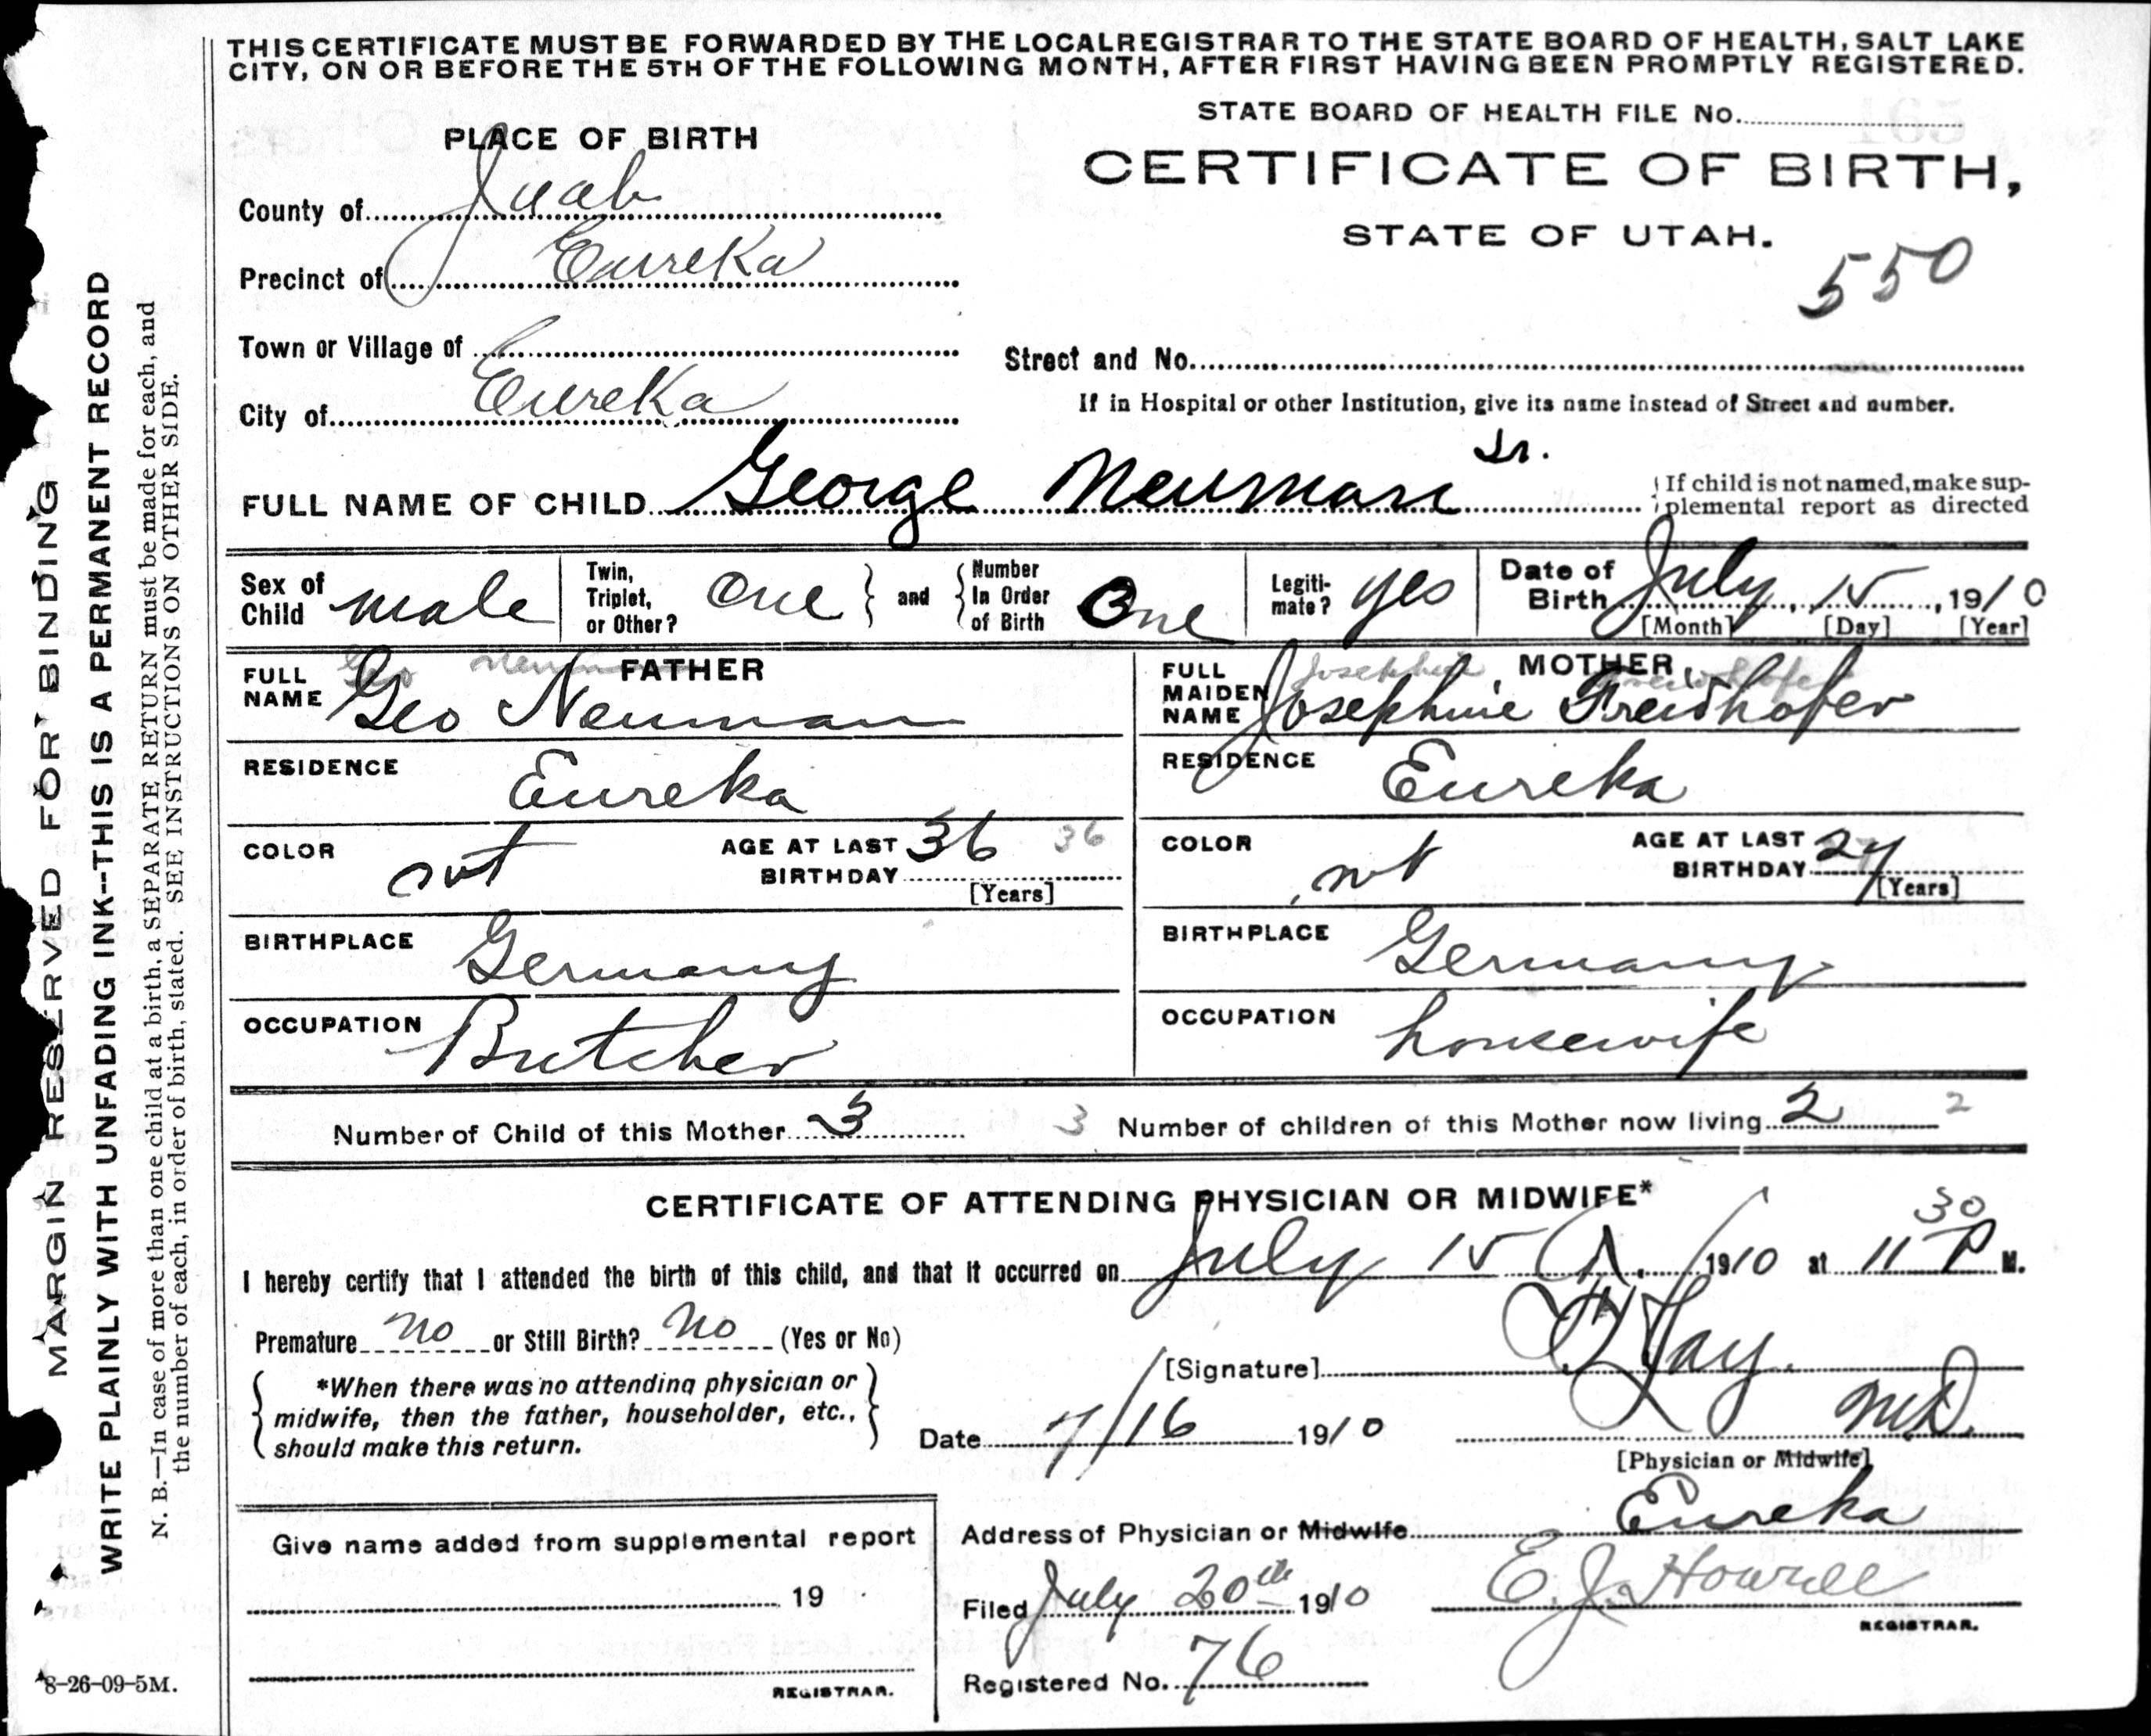 THIS CERTIFICATE MUST BE FORWARDED BY THE LOCAL REGISTRAR TO THE STATE BOARD OF HEALTH, SALT LAKE
CITY, ON OR BEFORE THE 5TH OF THE FOLLOWING MONTH, AFTER FIRST HAVING BEEN PROMPTLY REGISTERED.
STATE BOARD OF HEALTH FILE No.
PLACE OF BIRTH
CERTIFICATE OF BIRTH,
STATE OF UTAH.
550
County of Juab
Precinct of Eureka
Town or Village of
Street and No.
City of Eureka
If in Hospital or other Institution, give its name instead of Street and number.
FULL NAME OF CHILD George Neuman Jr.
If child is not named, make sup-
plemental report as directed
Sex of Child male
Twin, Triplet, or Other? One and Number In Order of Birth One
Legiti-mate? yes
Date of Birth July 15, 1910
[Month] [Day] [Year]
FATHER
FULL NAME Geo Neuman
Geo Neuman
MOTHER
FULL MAIDEN NAME Josephine Freidhofer
Josephine
RESIDENCE Eureka
RESIDENCE Eureka
COLOR
AGE AT LAST BIRTHDAY 36 36
[Years]
COLOR
AGE AT LAST BIRTHDAY 27
[Years]
BIRTHPLACE Germany
BIRTHPLACE Germany
OCCUPATION Butcher
OCCUPATION housewife
Number of Child of this Mother 3 3
Number of children of this Mother now living 2 2
CERTIFICATE OF ATTENDING PHYSICIAN OR MIDWIFE*
I hereby certify that I attended the birth of this child, and that it occurred on July 15 1910 at 11 30 P M.
Premature no or Still Birth? no (Yes or No)
[Signature]
*When there was no attending physician or
midwife, then the father, householder, etc.,
should make this return.
Date 7/16 1910
M.D.
[Physician or Midwife]
Give name added from supplemental report
Address of Physician or Midwife Eureka
19
Filed July 20th 1910
E. J. Howell
REGISTRAR.
Registered No. 76
REGISTRAR.
8-26-09-5M.
MARGIN RESERVED FOR BINDING
WRITE PLAINLY WITH UNFADING INK--THIS IS A PERMANENT RECORD
N. B.—In case of more than one child at a birth, a SEPARATE RETURN must be made for each, and
the number of each, in order of birth, stated. SEE INSTRUCTIONS ON OTHER SIDE.